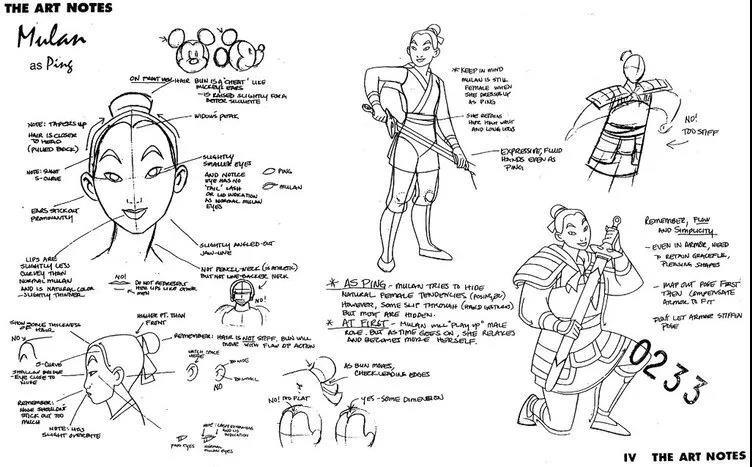 THE ART NOTES
Mulan
as Ping
HAIR BUN IS A "CHEAT" LIKE
MICKEY'S EARS
- IS RAISED SLIGHTLY FOR A
BETTER SILHOUETTE
WIDOW'S PEAK
NOTE: TAPERS UP
HAIR IS CLOSER
TO HEAD
(PULLED BACK)
NOTE: SLIGHT
S-CURVE
EARS STICK OUT
PROMINANTLY
SLIGHTLY
SMALLER EYES
AND NOTICE
EYE HAS NO
"TAIL" LASH
OR LID INDICATION
AS NORMAL MULAN
EYES
PING
MULAN
SLIGHTLY ANGLED-OUT
JAW-LINE
LIPS ARE
SLIGHTLY LESS
CURVEY THAN
NORMAL MULAN
AND IS NATURAL COLOR
- SLIGHTLY THINNER
NO!
DO NOT REPRESENT
HER LIPS LIKE OTHER
MEN
NOT PENCIL-NECK (IS ATHLETIC)
BUT NOT LINE-BACKER NECK
NO!
* KEEP IN MIND
MULAN IS STILL
FEMALE WHEN
SHE DRESSES UP
AS PING
SHE RETAINS
HER HIGH WAIST
AND LONG LEGS
EXPRESSIVE, FLUID
HANDS EVEN AS
PING
NO!
TOO STIFF
REMEMBER, FLOW
AND SIMPLICITY
- EVEN IN ARMOR, NEED
TO RETAIN GRACEFUL,
PLEASING SHAPES
- MAP OUT POSE FIRST
THEN COMPENSATE
ARMOR TO FIT
DON'T LET ARMOR STIFFEN
POSE
* AS PING - MULAN TRIES TO HIDE
NATURAL FEMALE TENDENCIES
HOWEVER, SOME SLIP THROUGH (HAND GESTURES)
BUT MOST ARE HIDDEN.
* AT FIRST - MULAN WILL "PLAY UP" MALE
ROLE. BUT AS TIME GOES ON, SHE RELAXES
AND BECOMES MORE HERSELF.
SHOW SOME THICKNESS
OF HAIR
NO
HIGHER PT. THAN
FRONT
S-CURVE
SHALLOW BRIDGE
- EYE CLOSE TO
NOSE
REMEMBER:
NOSE SHOULDN'T
STICK OUT TOO
MUCH
NOTE: HAS
SLIGHT OVERBITE
REMEMBER: HAIR IS NOT STIFF, BUN WILL
MOVE WITH FLOW OF ACTION
NO
AS BUN MOVES,
CHECK LEADING EDGES
NO! TOO FLAT
YES - SOME DIMENSION
PING EYES
NORMAL
MULAN EYES
0233
IV THE ART NOTES